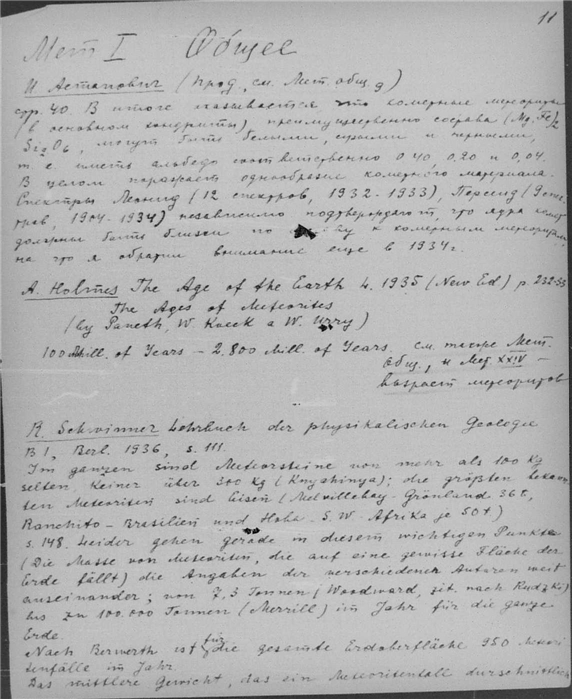 11
Мет I Общее
И. Астапович (прод. см. Мет. общ. 9)
стр. 40. В итоге оказывается что комерные метеориты
(в основном хондриты), преимущественно состава (Mg, Fe)2
Si2O6, могут быть белыми, серыми и черными,
т е иметь альбедо соответственно 0.40, 0,20 и 0,04.
В целом поражает однообразие комерного материала.
Спектры Леонид (12 спектров, 1932-1933), Персеид (9 спек-
тров, 1904-1934) независимо подтверждают, что ядра комет
должны быть близки по к комерным метеоритам,
на что я обратил внимание еще в 1934 г.
A. Holmes The Age of the Earth L. 1935 (New Ed) p. 232-33
The Ages of Meteorites
(by Paneth, W. Koeck а W. Urry)
100 Mill. of Years – 2.800 Mill. of Years см. также Мет.
Общ., и Мет XXIV –
возраст метеоритов
R. Schwinner Lehrbuch der physikalischen Geologie
B I, Berl. 1936, s. 111.
Im ganzen sind Meteorsteine von mehr als 100 Kg
selten, keiner über 300 kg (Knyahinya); die größten bekann-
ten Meteoriten sind Eisen (Melvillebay-Grönland 36 t,
Ranchito – Brasilien und Hoba - S. W. Afrika je 50 t)
s. 148. Leider gehen gerade in diesem wichtigen Punkte
(Die Masse von Meteoriten, die auf eine gewisse Fläche der
Erde fällt) die Angaben der verschiedener Autoren weit
auseinander; von 7,3 Tonnen (Woodward, zit. nach Rudzki)
bis zu 100.000 Tonnen (Merrill) im Jahr für die ganze
Erde.
Nach Berwerth ist für die gesamte Erdoberfläche 950 Meteori-
tenfälle im Jahr.
Das mittlere Gewicht, das ein Meteoritenfall durschnittlich